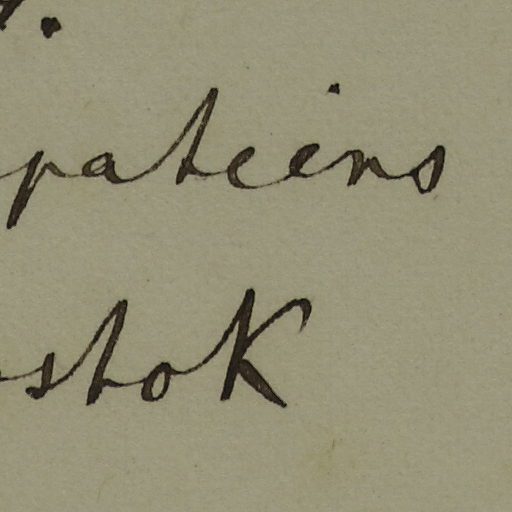 patiens
stok